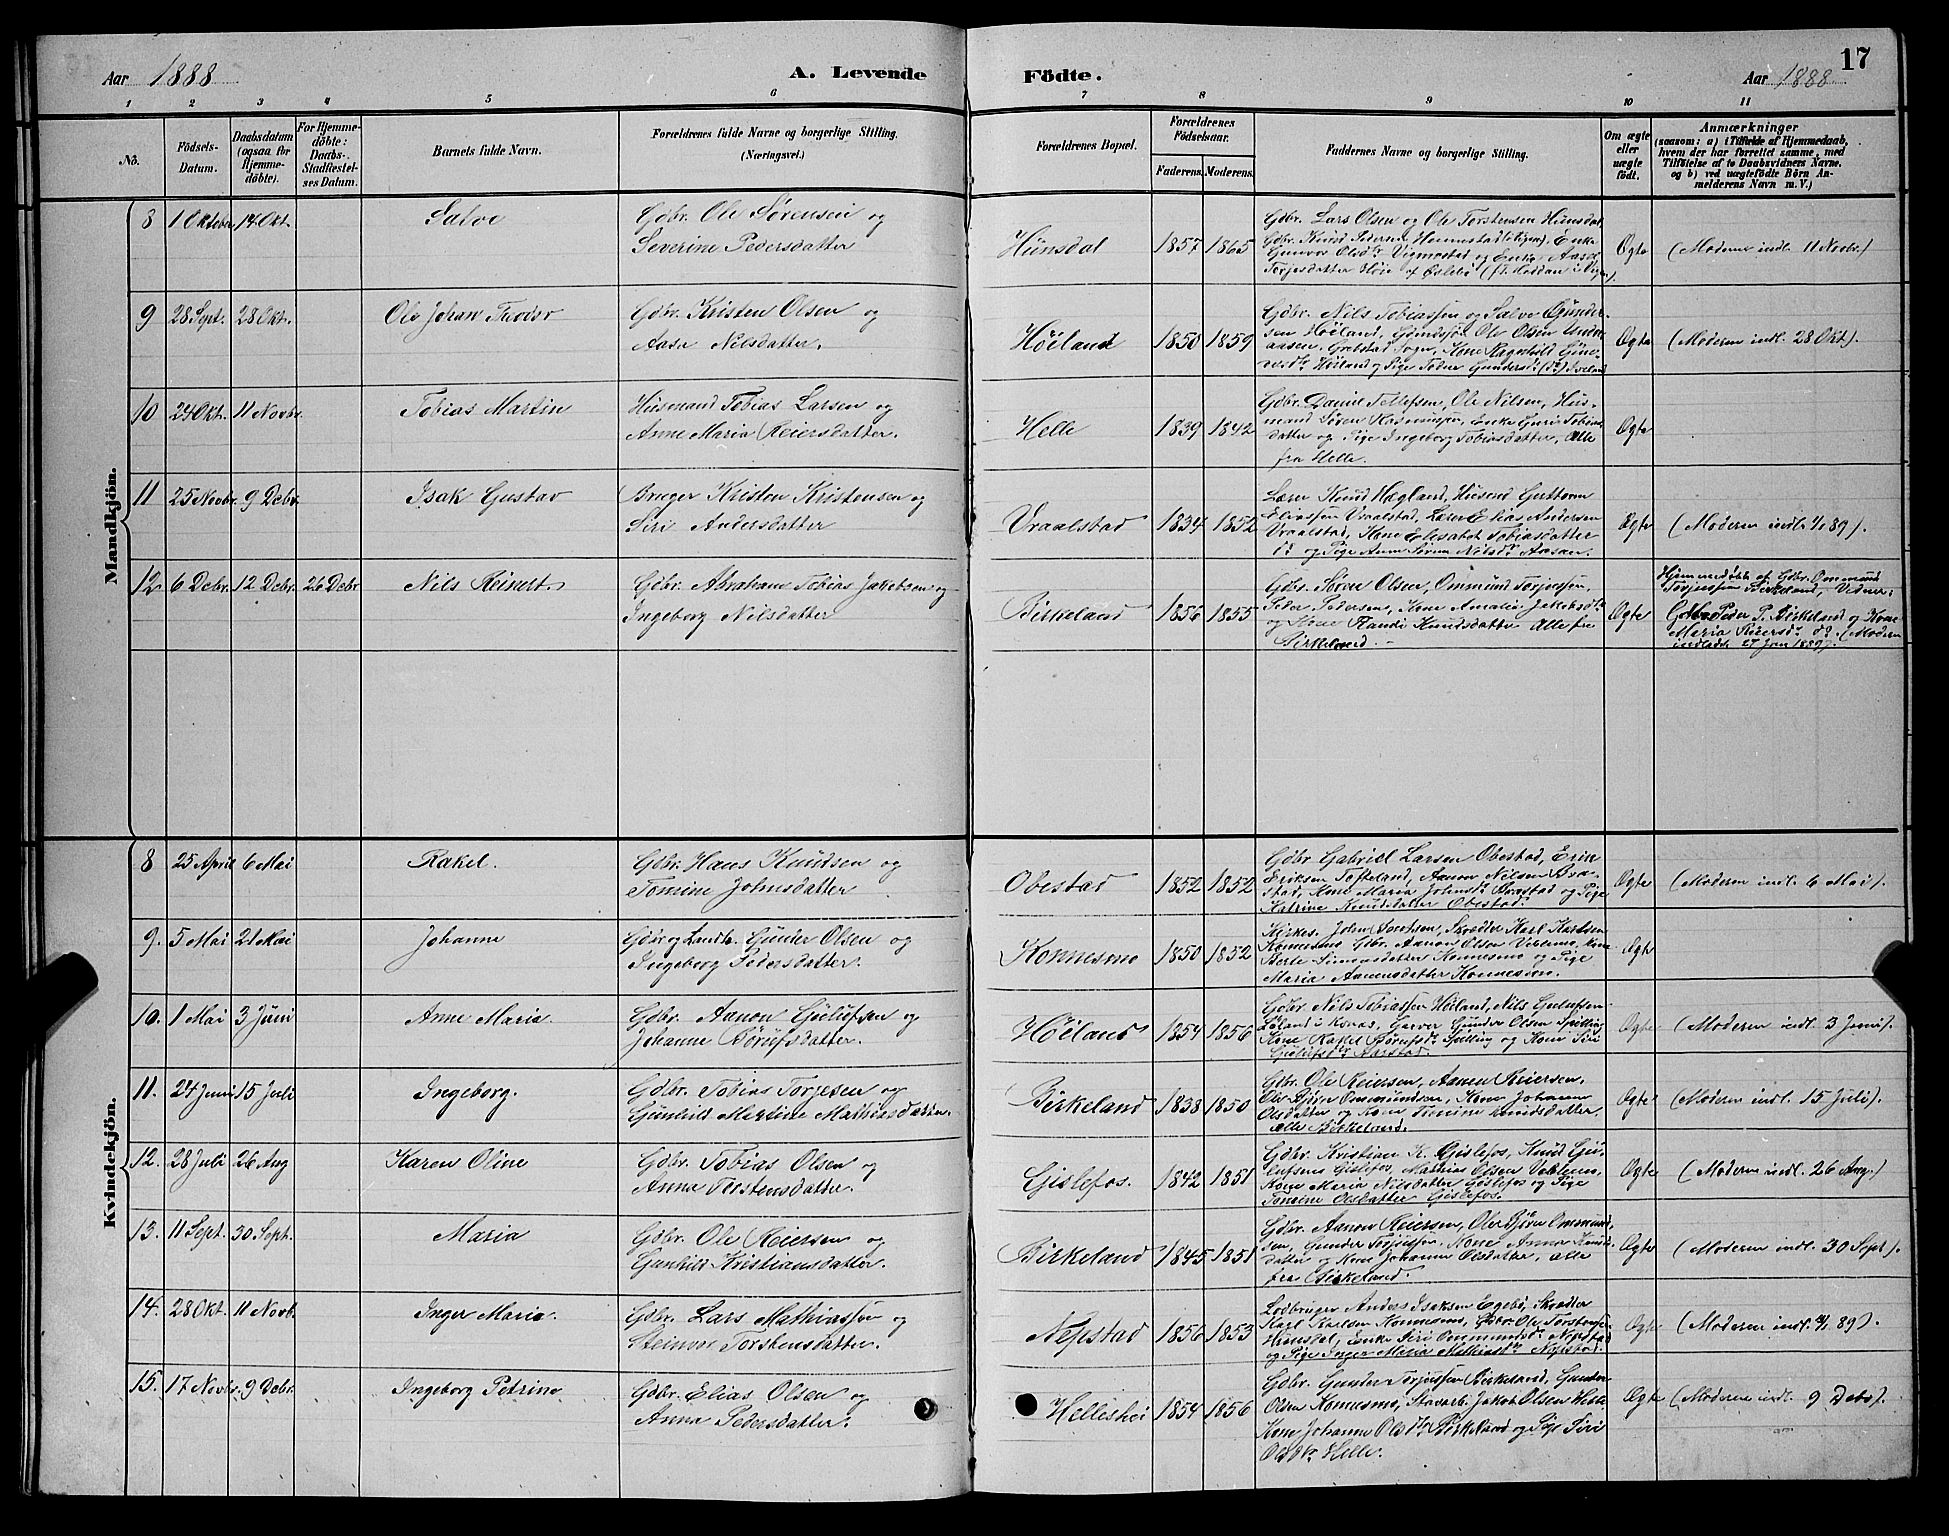 17
Aar 1888 A. Levende Födte. Aar 1888
1 2 3 4 5 6 7 8 9 10 11
No. Födsels-Datum. Daabsdatum (ogsaa for Hjemme-döbte). For Hjemme-döbte: Daabs-Stadfæstelses Datum. Barnets fulde Navn. Forældrenes fulde Navne og borgerlige Stilling. (Næringsvei.) Forældrenes Bopæl. Forældrenes Födselsaar. Faderens. Moderens. Faddernes Navne og borgerlige Stilling. Om ægte eller uægte födt. Anmærkninger (saasom: a) i Tilfælde af Hjemmedaab, hvem der har forrettet samme, med Tilföielse af to Daabsvidners Navne, og b) ved uægtefödte Börn Anmelderens Navn m. V.)
Mandkjön.
8 1 Oktober 14 Okt. Salve Gdbr. Ole Sørensen og
Severine Pedersdatter Hunsdal 1857 1865 Gdbr. Lars Olsen og Ole Torstensen Hunsdal,
Gdbr. Knud Pedersen Enke
Gunvor Olsdr. Vigmostad og Enke Aase
Torjesdatter Høie Ægte (Moderen indl. 11 Novbr.)
9 28 Sept. 28 Okt. Ole Johan Teodor Gdbr. Kristen Olsen og
Aase Nilsdatter. Høiland 1850 1859 Gdbr. Nils Tobiassen og Salve Gunder-
sen Høiland, Ole Olsen
Sogn, Kone Ragnhild
Høiland og Pige Gundersdr. Ægte (Moderen indl. 28 Okt).
10 24 Okt. 11 Novbr. Tobias Martin Husmand Tobias Larsen og
Anne Maria Reiersdatter. Helle 1839 1842 Gdbr. Daniel Tellefsen, Ole Nilsen, Hus-
mand Søren Rasmussen, Enke Guri Tobias-
datter og Pige Ingeborg Tobiasdatter, Alle
fra Helle. Ægte
11 25 Novbr. 9 Debr. Isak Gustav Bruger Kristen Kristensen og
Siri Andersdatter Vraalstad 1834 1852 Lærer Knud Hægland, Husmd Guttorm
Eliassen Vraalstad, Lærer Elias Andersen
Vraalstad, Kone Elisabet Tobiasdatter
og Pige Nilsdr. Aasen. Ægte (Moderen indl. 89).
12 6 Debr. 12 Debr. 26 Debr Nils Reinert. Gdbr. Abraham Tobias Jakobsen og
Ingeborg Nilsdatter Birkeland 1856 1855 Gdbr. Olsen, Ommund Torjussen,
Peder Pedersen, Kone Amalie Jakobsdr.
og Kone Randi Knudsdatter Alle fra
Birkeland. Ægte Hjemmedøbt af Gdbr. Ommund
Torjussen Birkeland, Vidner:
Gdbr. Peder P. Birkeland og Kone
Maria Reiersdr. do. (Moderen
indledet 27 Jan 1889).
Kvindekjön.
8 25 April 6 Mai Rakel. Gdbr. Hans Knudsen og
Tomine Johnsdatter Obestad 1852 1852 Gdbr Gabriel Larsen Obestad, Erik
Eriksen Tofteland, Aanon Nilsen
Kone Maria Johnsdr. og Pige
Katrine Knudsdatter Obestad. Ægte (Moderen indl. 6 Mai).
9. 5 Mai 21 Mai Johanne Gdbr og Landh. Gunder Olsen og
Ingeborg Pedersdatter. Konnesmo 1850 1852 Kirkes. John Skrædder Karl Karlsen
Konnesmo Gdbr. Aanon Olsen Kone
Berte Simonsdatter Konnesmo og Pige
Maria Aanensdatter Konnesmo. Ægte
10. 1 Mai 3 Juni Anne Maria Gdbr. Aanon Gjulufsen og
Johanne Børufsdatter. Høiland 1854 1856 Gdbr Nils Tobiassen Høiland, Nils
Garver Gunder Olsen Spilling
Kone Rakel Børufsdr. Spilling og Kone Siri
Gjulufsdr. Ægte (Moderen indl. 3 Juni).
11. 24 Juni 15 Juli Ingeborg. Gdbr. Tobias Torjesen og
Gunhild Mertine Mathiasdatter. Birkeland 1838 1850 Gdbr. Ole Reiersen, Aanen Reiersen.
Ole Bjørn Ommundsen, Kone Johanne
Olsdatter og Kone Tomine Knudsdatter,
alle Birkeland. Ægte (Moderen indl. 15 Juli).
12. 28 Juli 26 Aug Karen Oline Gdbr. Tobias Olsen og
Anna Torstensdatter. Gislefos. 1842 1851 Gdbr. Kristian K. Gislefos, Knud
Gislefos, Mathias Olsen
Kone Maria Nilsdatter Gislefos og Pige
Tomine Olsdatter Gislefos. Ægte (Moderen indl. 26 Aug.)
13. 11 Sept. 30 Sept. Maria Gdbr. Ole Reiersen og
Gunhild Kristiansdatter. Birkeland 1845 1851 Gdbr. Aanon Reiersen, Ole Bjørn Ommund-
sen, Gunder Torjussen, Kone Anna Knuds-
datter og Kone Johanne Olsdatter, alle
fra Birkeland. Ægte (Moderen indl. 30 Sept).
14. 28 Okt. 11 Novb. Inger Maria. Gdbr. Lars Mathiassen og
Steinvor Torstensdatter. Nepstad 1856 1853 Lodbruger Anders Isaksen Egebø, Skrædder
Karl Karlsen Konnesmo, Gdbr. Ole Torstensen
Hunsdal, Enke Siri Ommundsdr. Nepstad
og Pige Inger Maria Mathiasdr. Nepstad. Ægte (Moderen indl. 89).
15. 17 Novbr. 9 Debr. Ingeborg Petrine Gdbr. Elias Olsen og
Anna Pedersdatter. Helleshei 1854 1856 Gdbr. Gunder Torjussen Birkeland, Gunder
Olsen Konnesmo, Jakob Olsen Helle
Kone Johanne Olsdr. Birkeland og Pige Siri
Olsdr. Helle. Ægte (Moderen indl. 9 Debr).